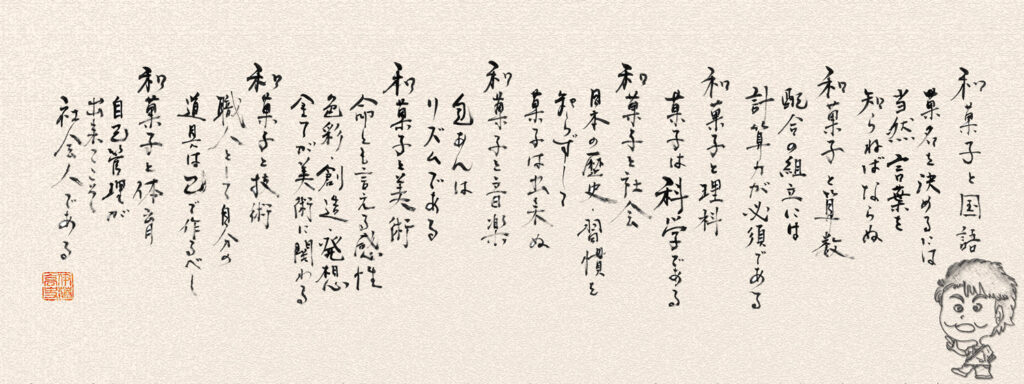 和菓子と国語
菓名を決めるには
当然言葉を
知らねばならぬ
和菓子と算数
配合の組立には
計算力が必須である
和菓子と理科
菓子は科学である
和菓子と社会
日本の歴史習慣を
知らずして
菓子は出来ぬ
和菓子と音楽
包あんは
リズムである
和菓子と美術
命とも言える感性
色彩・創造・発想
全てが美術に関わる
和菓子と技術
職人として自分の
道具は己で作るべし
和菓子と体育
自己管理が
出来てこそ
社会人である